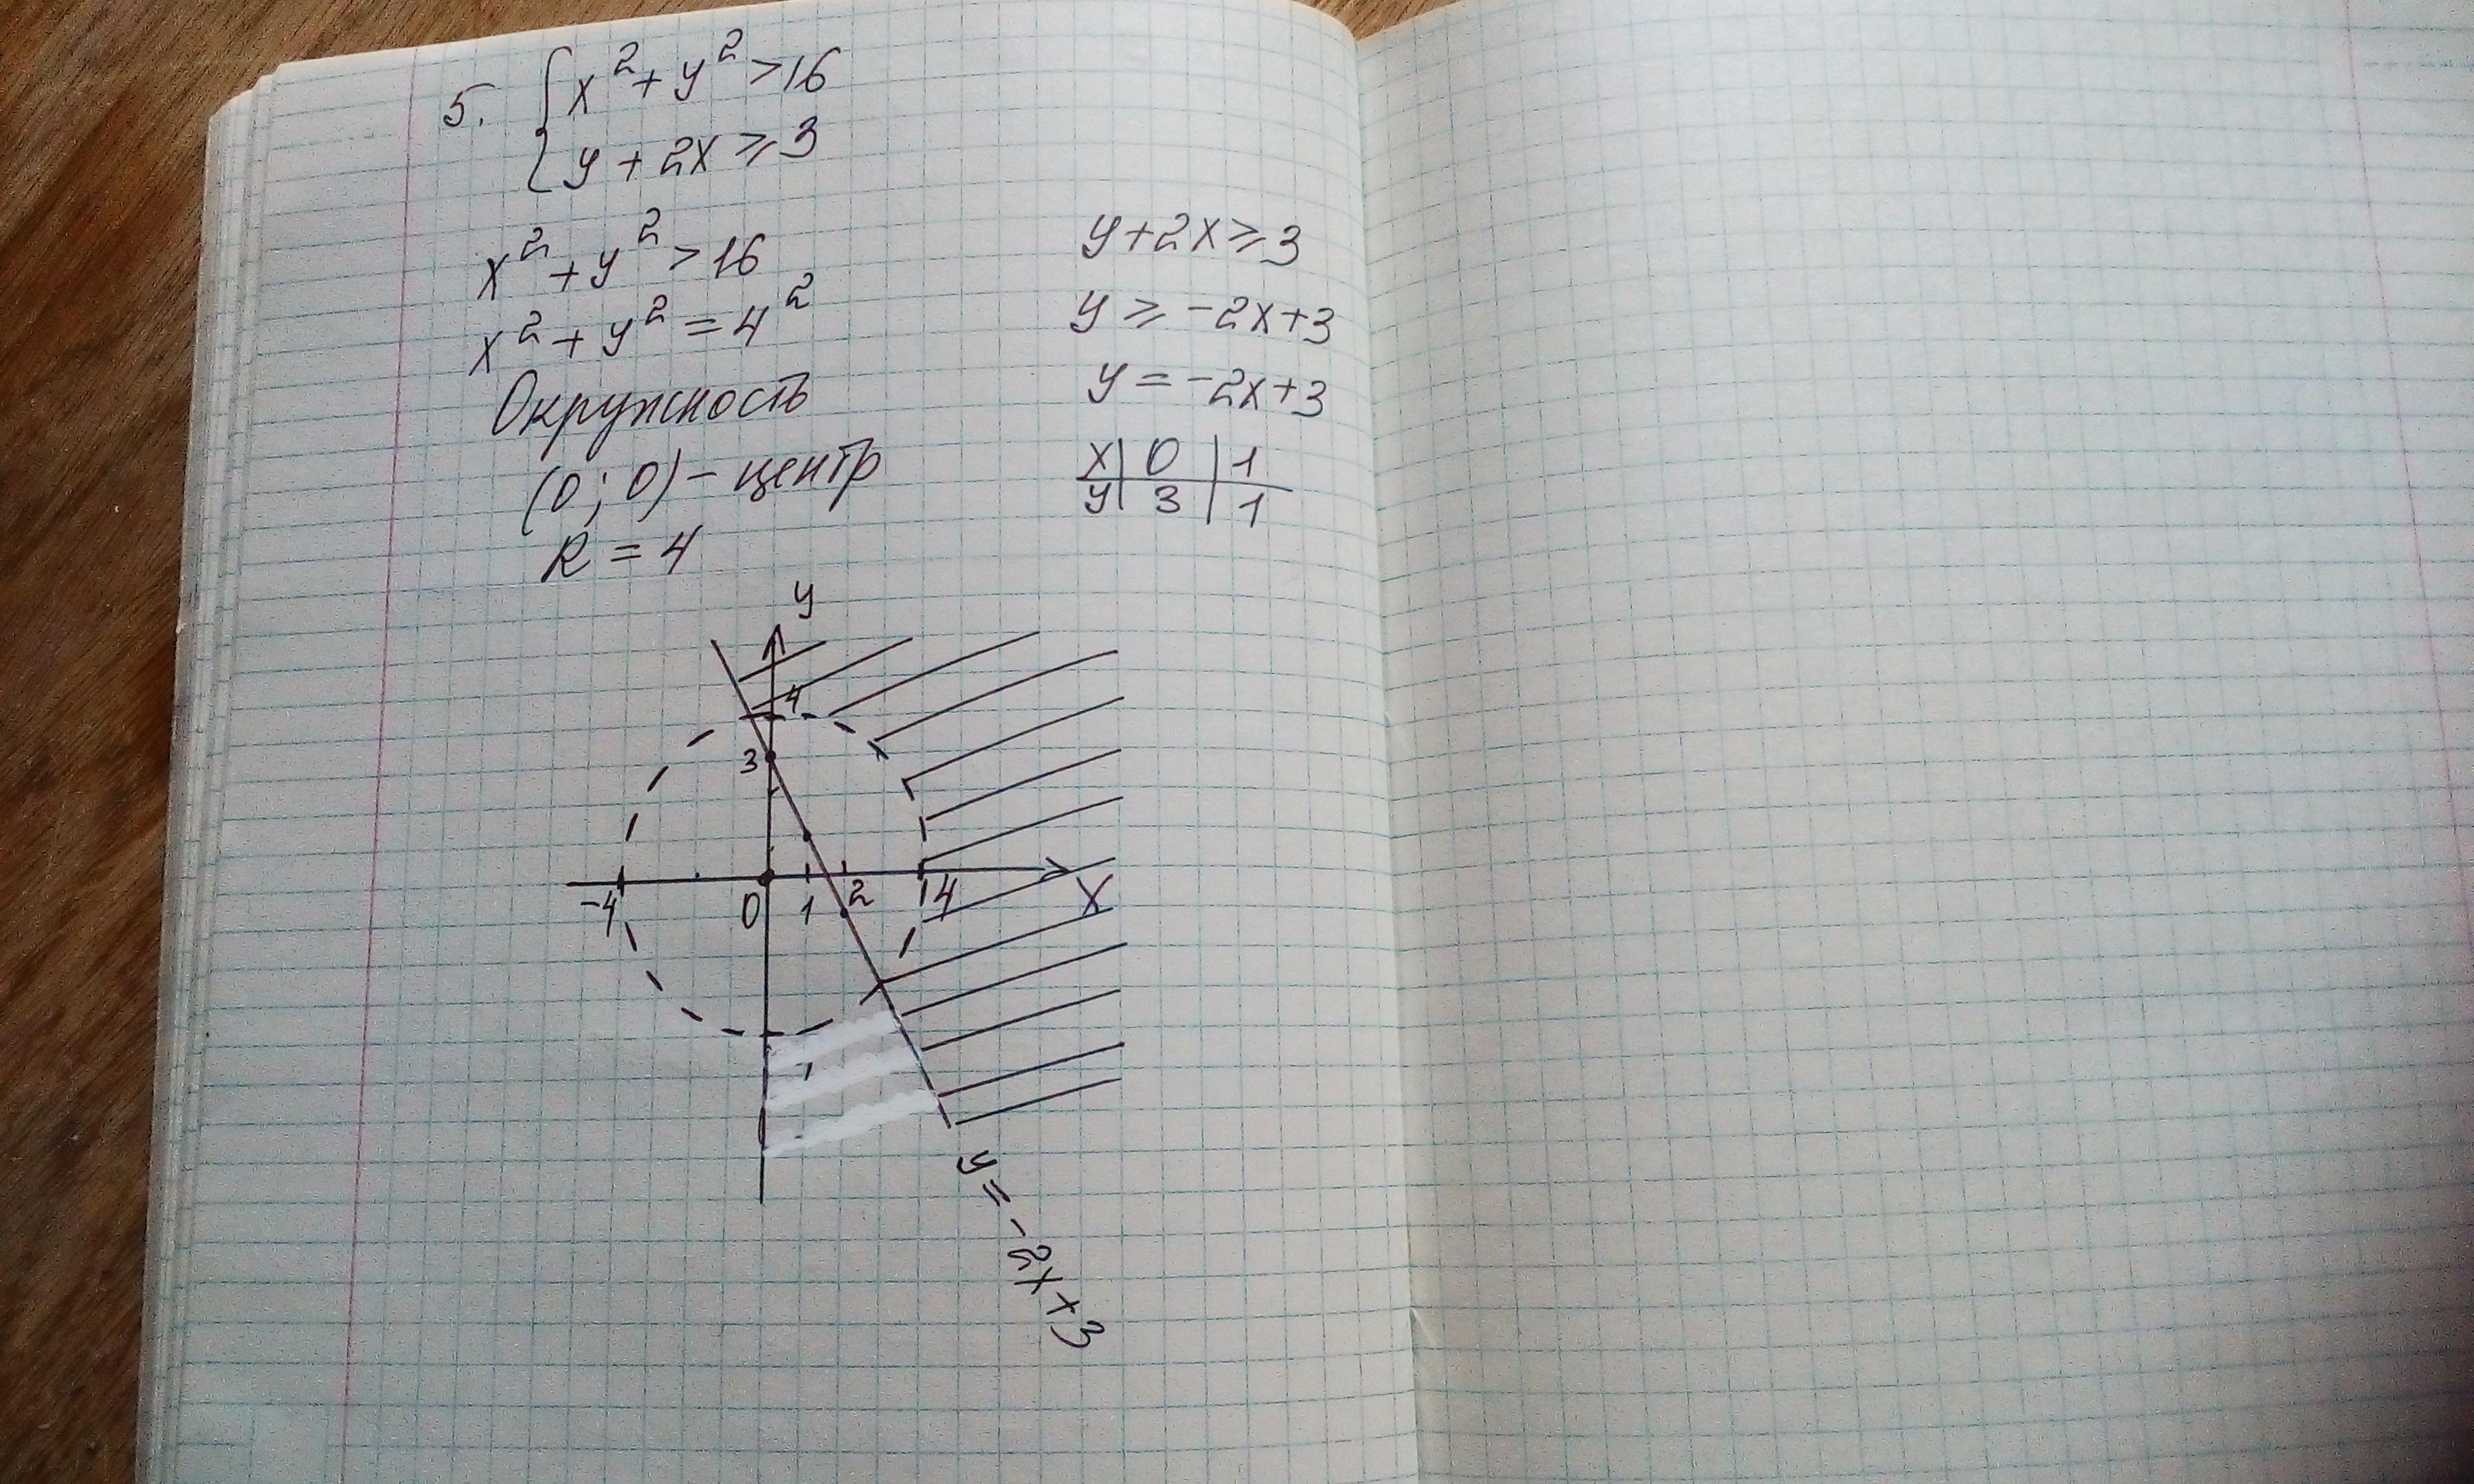 5. { x² + y² > 16
y + 2x ⩾ 3
x² + y² > 16
x² + y² = 4²
Окружность
(0; 0) – центр
R = 4
y + 2x ⩾ 3
y ⩾ -2x+3
y = -2x+3
x | 0 | 1
y | 3 | 1
y
4
3
-4
0
1
2
4
x
y = -2x+3